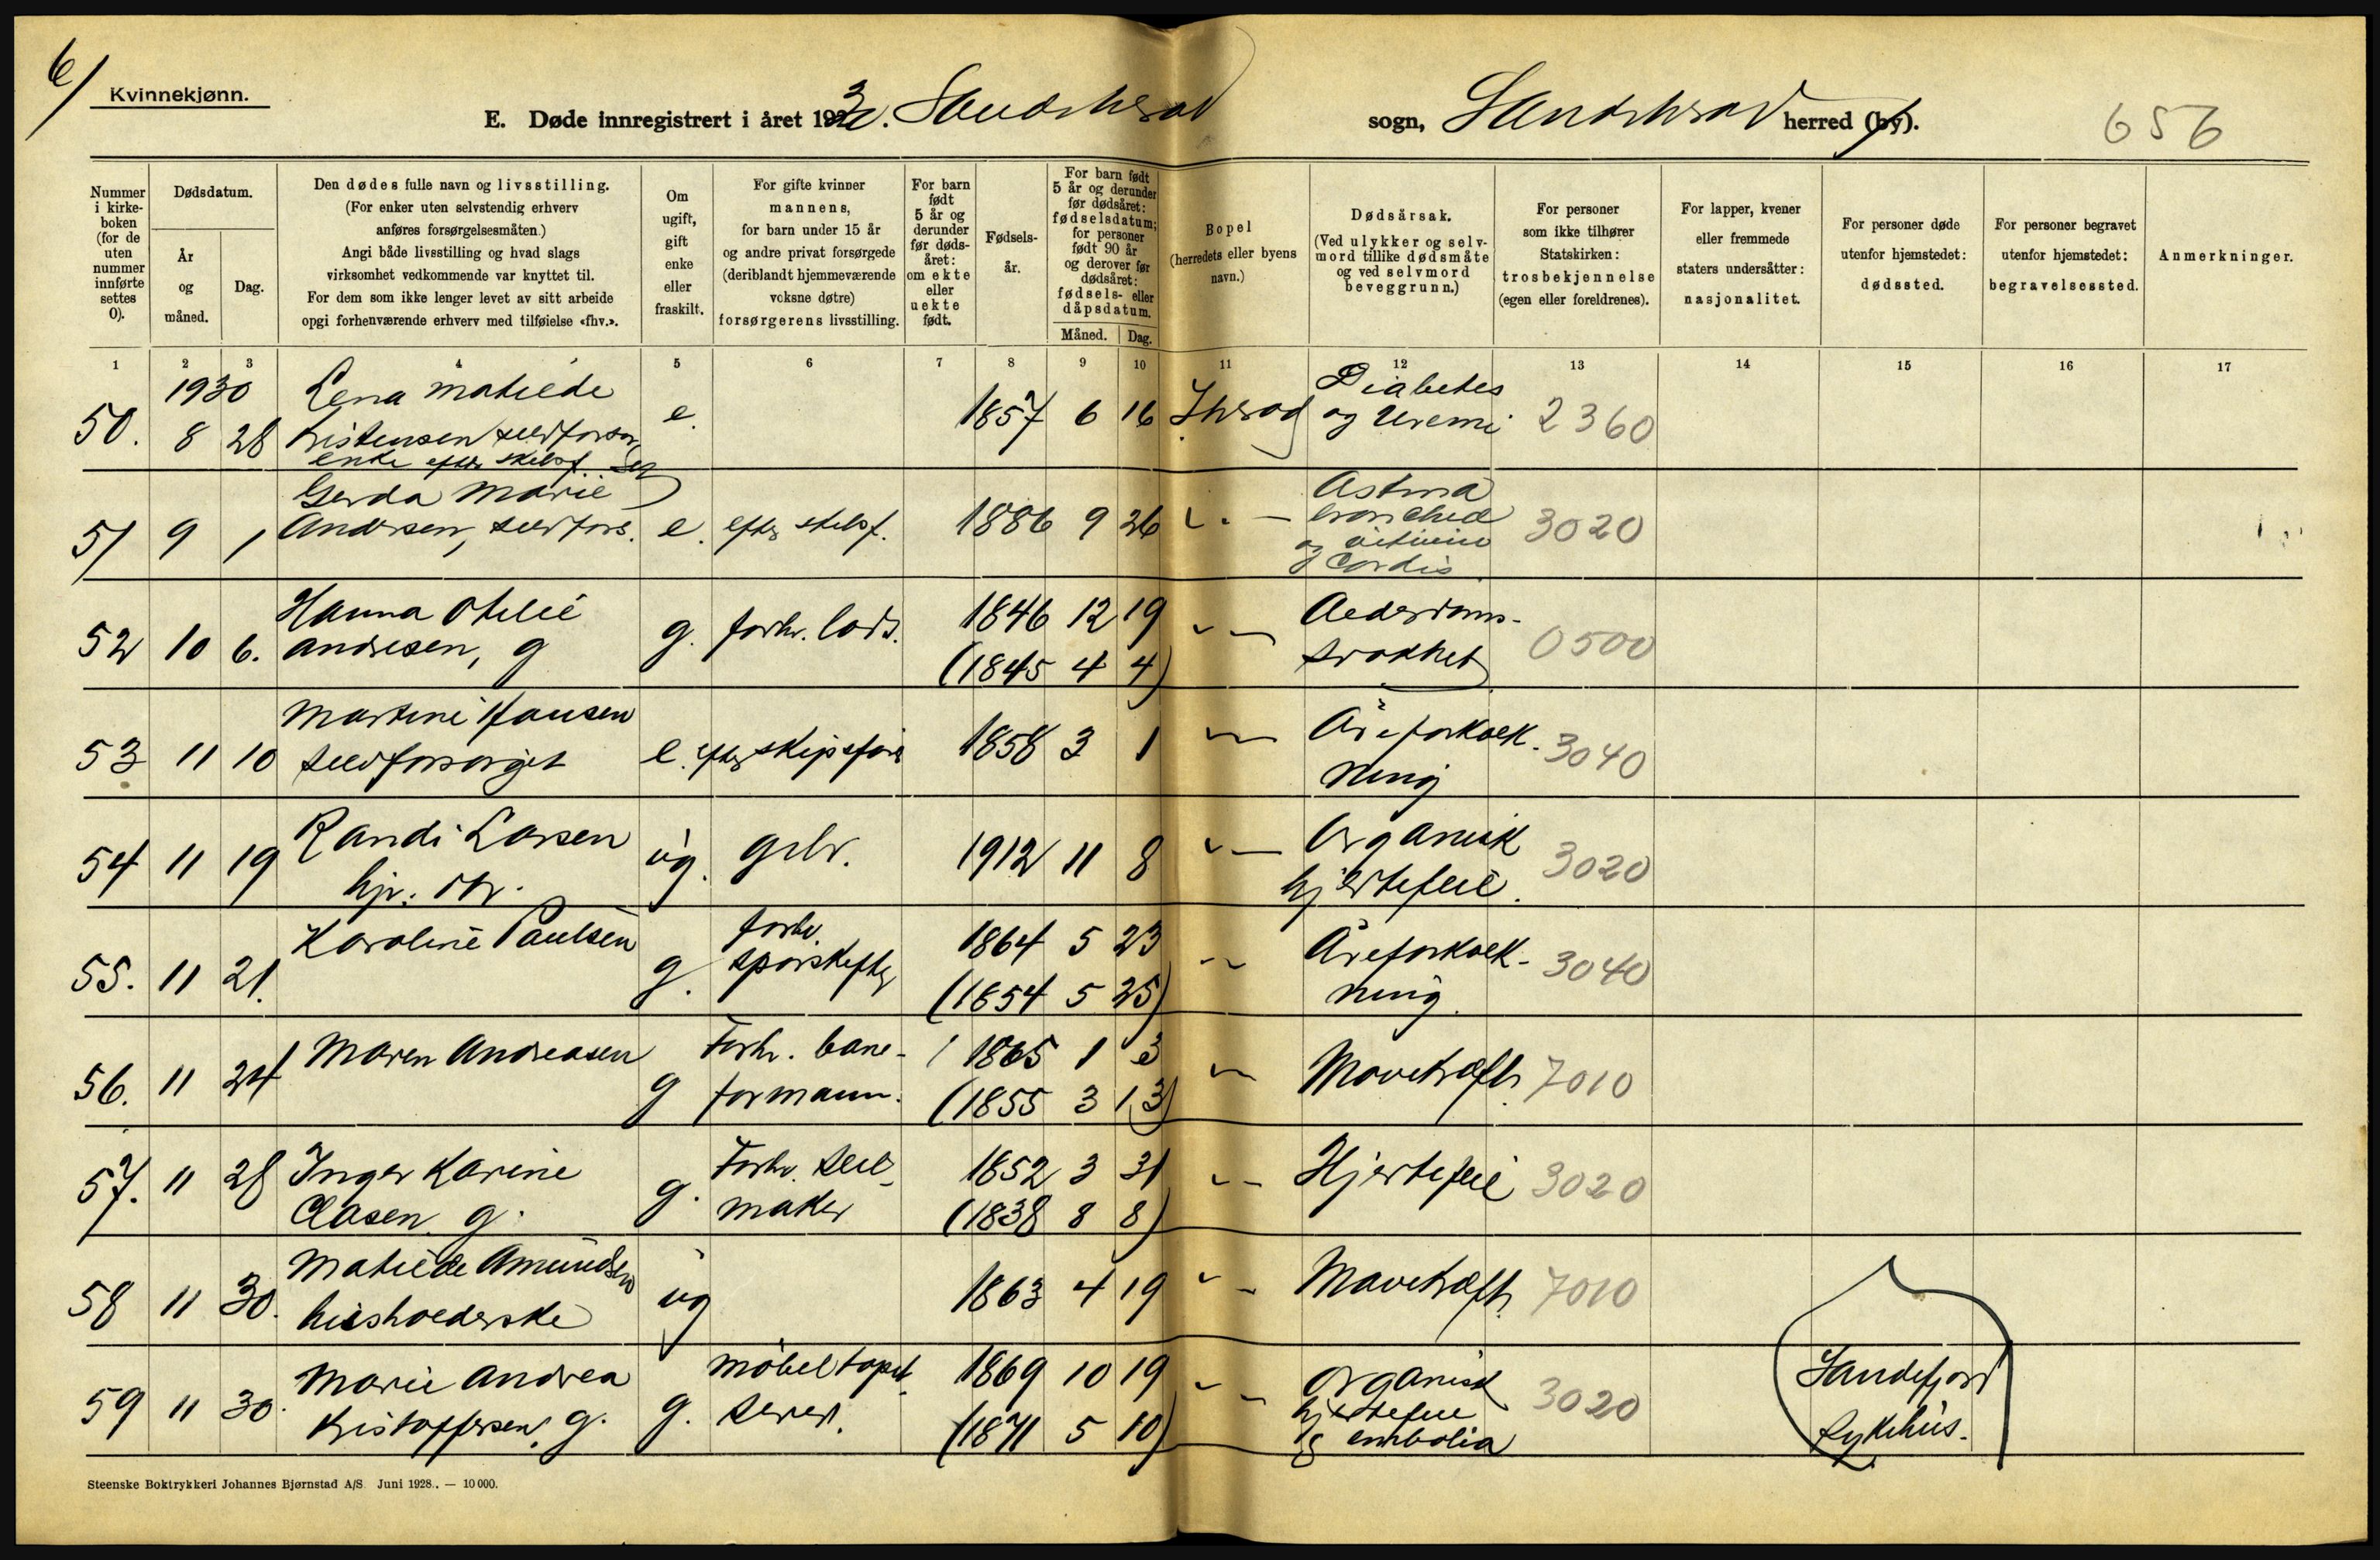 6/
Kvinnekjønn.
E. Døde innregistrert i året 1930. Sandeherad sogn, Sandeherad herred (by).
656
Nummer i kirkeboken (for de uten nummer innførte settes 0).
Dødsdatum.
År og måned.
Dag.
Den dødes fulle navn og livsstilling.
(For enker uten selvstendig erhverv anføres forsørgelsesmåten.)
Angi både livsstilling og hvad slags virksomhet vedkommende var knyttet til.
For dem som ikke lenger levet av sitt arbeide opgi forhenværende erhverv med tilføielse «fhv.».
Om ugift, gift enke eller fraskilt.
For gifte kvinner mannens, for barn under 15 år og andre privat forsørgede (deriblandt hjemmeværende voksne døtre) forsørgerens livsstilling.
For barn født 5 år og derunder før dødsåret: om ekte eller uekte født.
Fødselsår.
For barn født 5 år og derunder før dødsåret: fødselsdatum; for personer født 90 år og derover før dødsåret: fødsels- eller dåpsdatum.
Måned. Dag.
Bopel (herredets eller byens navn.)
Dødsårsak. (Ved ulykker og selvmord tillike dødsmåte og ved selvmord beveggrunn.)
For personer som ikke tilhører Statskirken: trosbekjennelse (egen eller foreldrenes).
For lapper, kvener eller fremmede staters undersåtter: nasjonalitet.
For personer døde utenfor hjemstedet: dødssted.
For personer begravet utenfor hjemstedet: begravelsessted.
Anmerkninger.
1 2 3 4 5 6 7 8 9 10 11 12 13 14 15 16 17
1930
50. 8 28 Lena Matilde Kristensen selvforsør. enke efter skibsf. e. 1857 6 16 Sherad Diabetes og Uremi 2360
51 9 1 Gerda Marie Andersen, selvfors. e. efter skibsf. 1886 9 26 " — Astma bronchial og Cordis 3020
52 10 6. Hanna Otilie Andresen, g g. forhv. lods. 1846 12 19 (1845 4 4) " — Alderdomssvakhet 0500
53 11 10 Martine Hansen selvforsørget e. efter skipsfører 1858 3 1 " — Åreforkalkning 3040
54 11 19 Randi Larsen hjv. dtr. ug. grbr. 1912 11 8 " — Organisk hjertefeil. 3020
55. 11 21. Karoline Paulsen g. forhv. sporskifter 1864 5 23 (1854 5 25) " — Åreforkalkning. 3040
56. 11 24 Maren Andreasen g Forhv. baneformann. 1865 1 3 (1855 3 13) " — Mavekræft. 7010
57. 11 28 Inger Karine Clasen g. g. Forhv. seilmaker 1852 3 31 (1838 8 8) " — Hjertefeil 3020
58 11 30. Matilde Amundsen husholderske ug 1863 4 19 " — Mavekræft. 7010
59 11 30. Marie Andrea Kristoffersen, g. g. møbeltapetserer. 1869 10 19 (1871 5 10) " — Organisk hjertefeil & embolia 3020 Sandefjord Sykehus.
Steenske Boktrykkeri Johannes Bjørnstad A/S. Juni 1928. — 10 000.